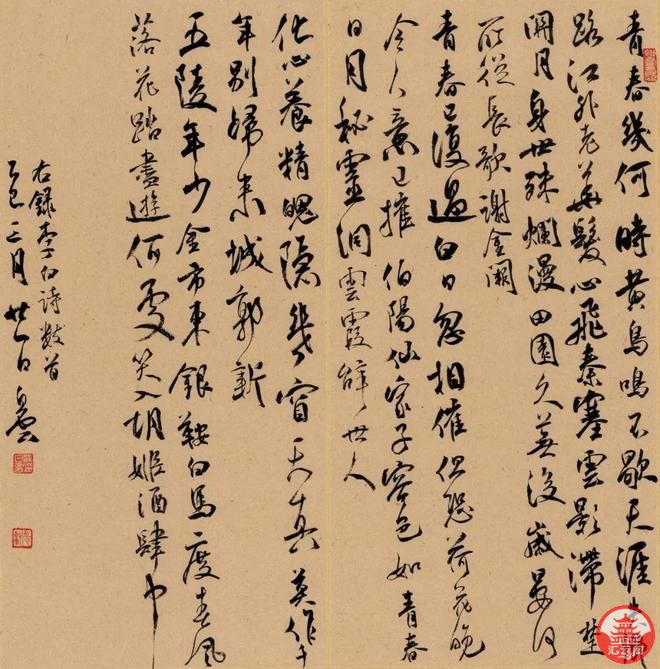 青春幾何時黄鳥鳴不歇天涯失鄉
路江外老華髮心飛秦塞雲影滯楚
關月身世殊爛漫田園久蕪沒歲晏何
所從長歌謝金闕
青春已復過白日忽相催但恐荷花晚
令人意已摧伯陽仙家子容色如青春
日月秘靈洞雲霞辭世人
化心養精魄隱几窅天真莫作千
年別歸來城郭新
五陵年少金市東銀鞍白馬度春風
落花踏盡遊何處笑入胡姬酒肆中
右錄李白詩數首
乙巳三月廿日
汇云网